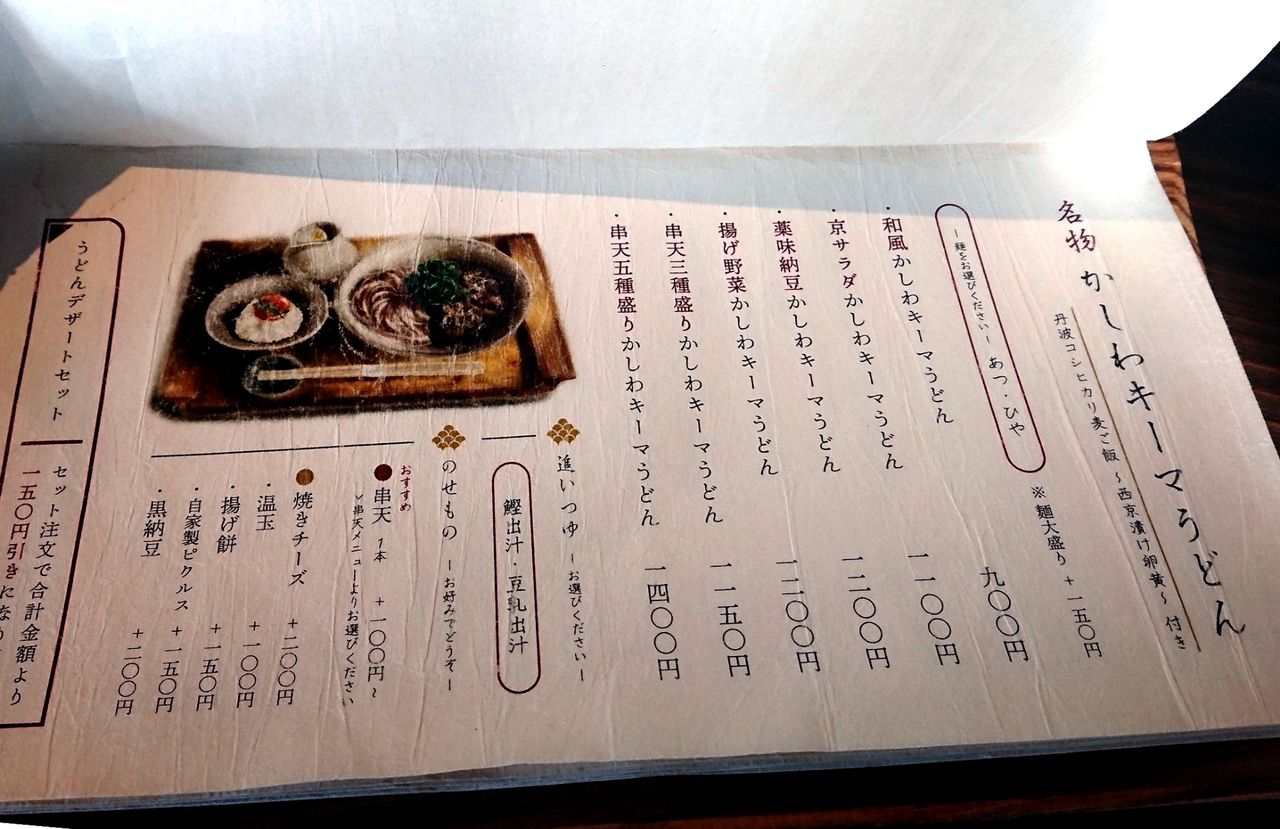 名物 かしわキーマうどん
丹波コシヒカリ麦ご飯 ~西京漬け卵黄~ 付き
ー 麺をお選びください ー あつ・ひや
※ 麺大盛り + 一五〇円
・和風かしわキーマうどん 九〇〇円
・京サラダかしわキーマうどん 一一〇〇円
・薬味納豆かしわキーマうどん 一二〇〇円
・揚げ野菜かしわキーマうどん 一二〇〇円
・串天三種盛りかしわキーマうどん 一一五〇円
・串天五種盛りかしわキーマうどん 一四〇〇円
追いつゆ ー お選びください ー
鰹出汁・豆乳出汁
のせもの ー お好みでどうぞ ー
おすすめ
串天 1本 + 一〇〇円~
串天メニューよりお選びください
焼きチーズ + 二〇〇円
・温玉 + 一〇〇円
・揚げ餅 + 一五〇円
・自家製ピクルス + 一五〇円
・黒納豆 + 二〇〇円
うどんデザートセット
セット注文で合計金額より
一五〇円引きにな